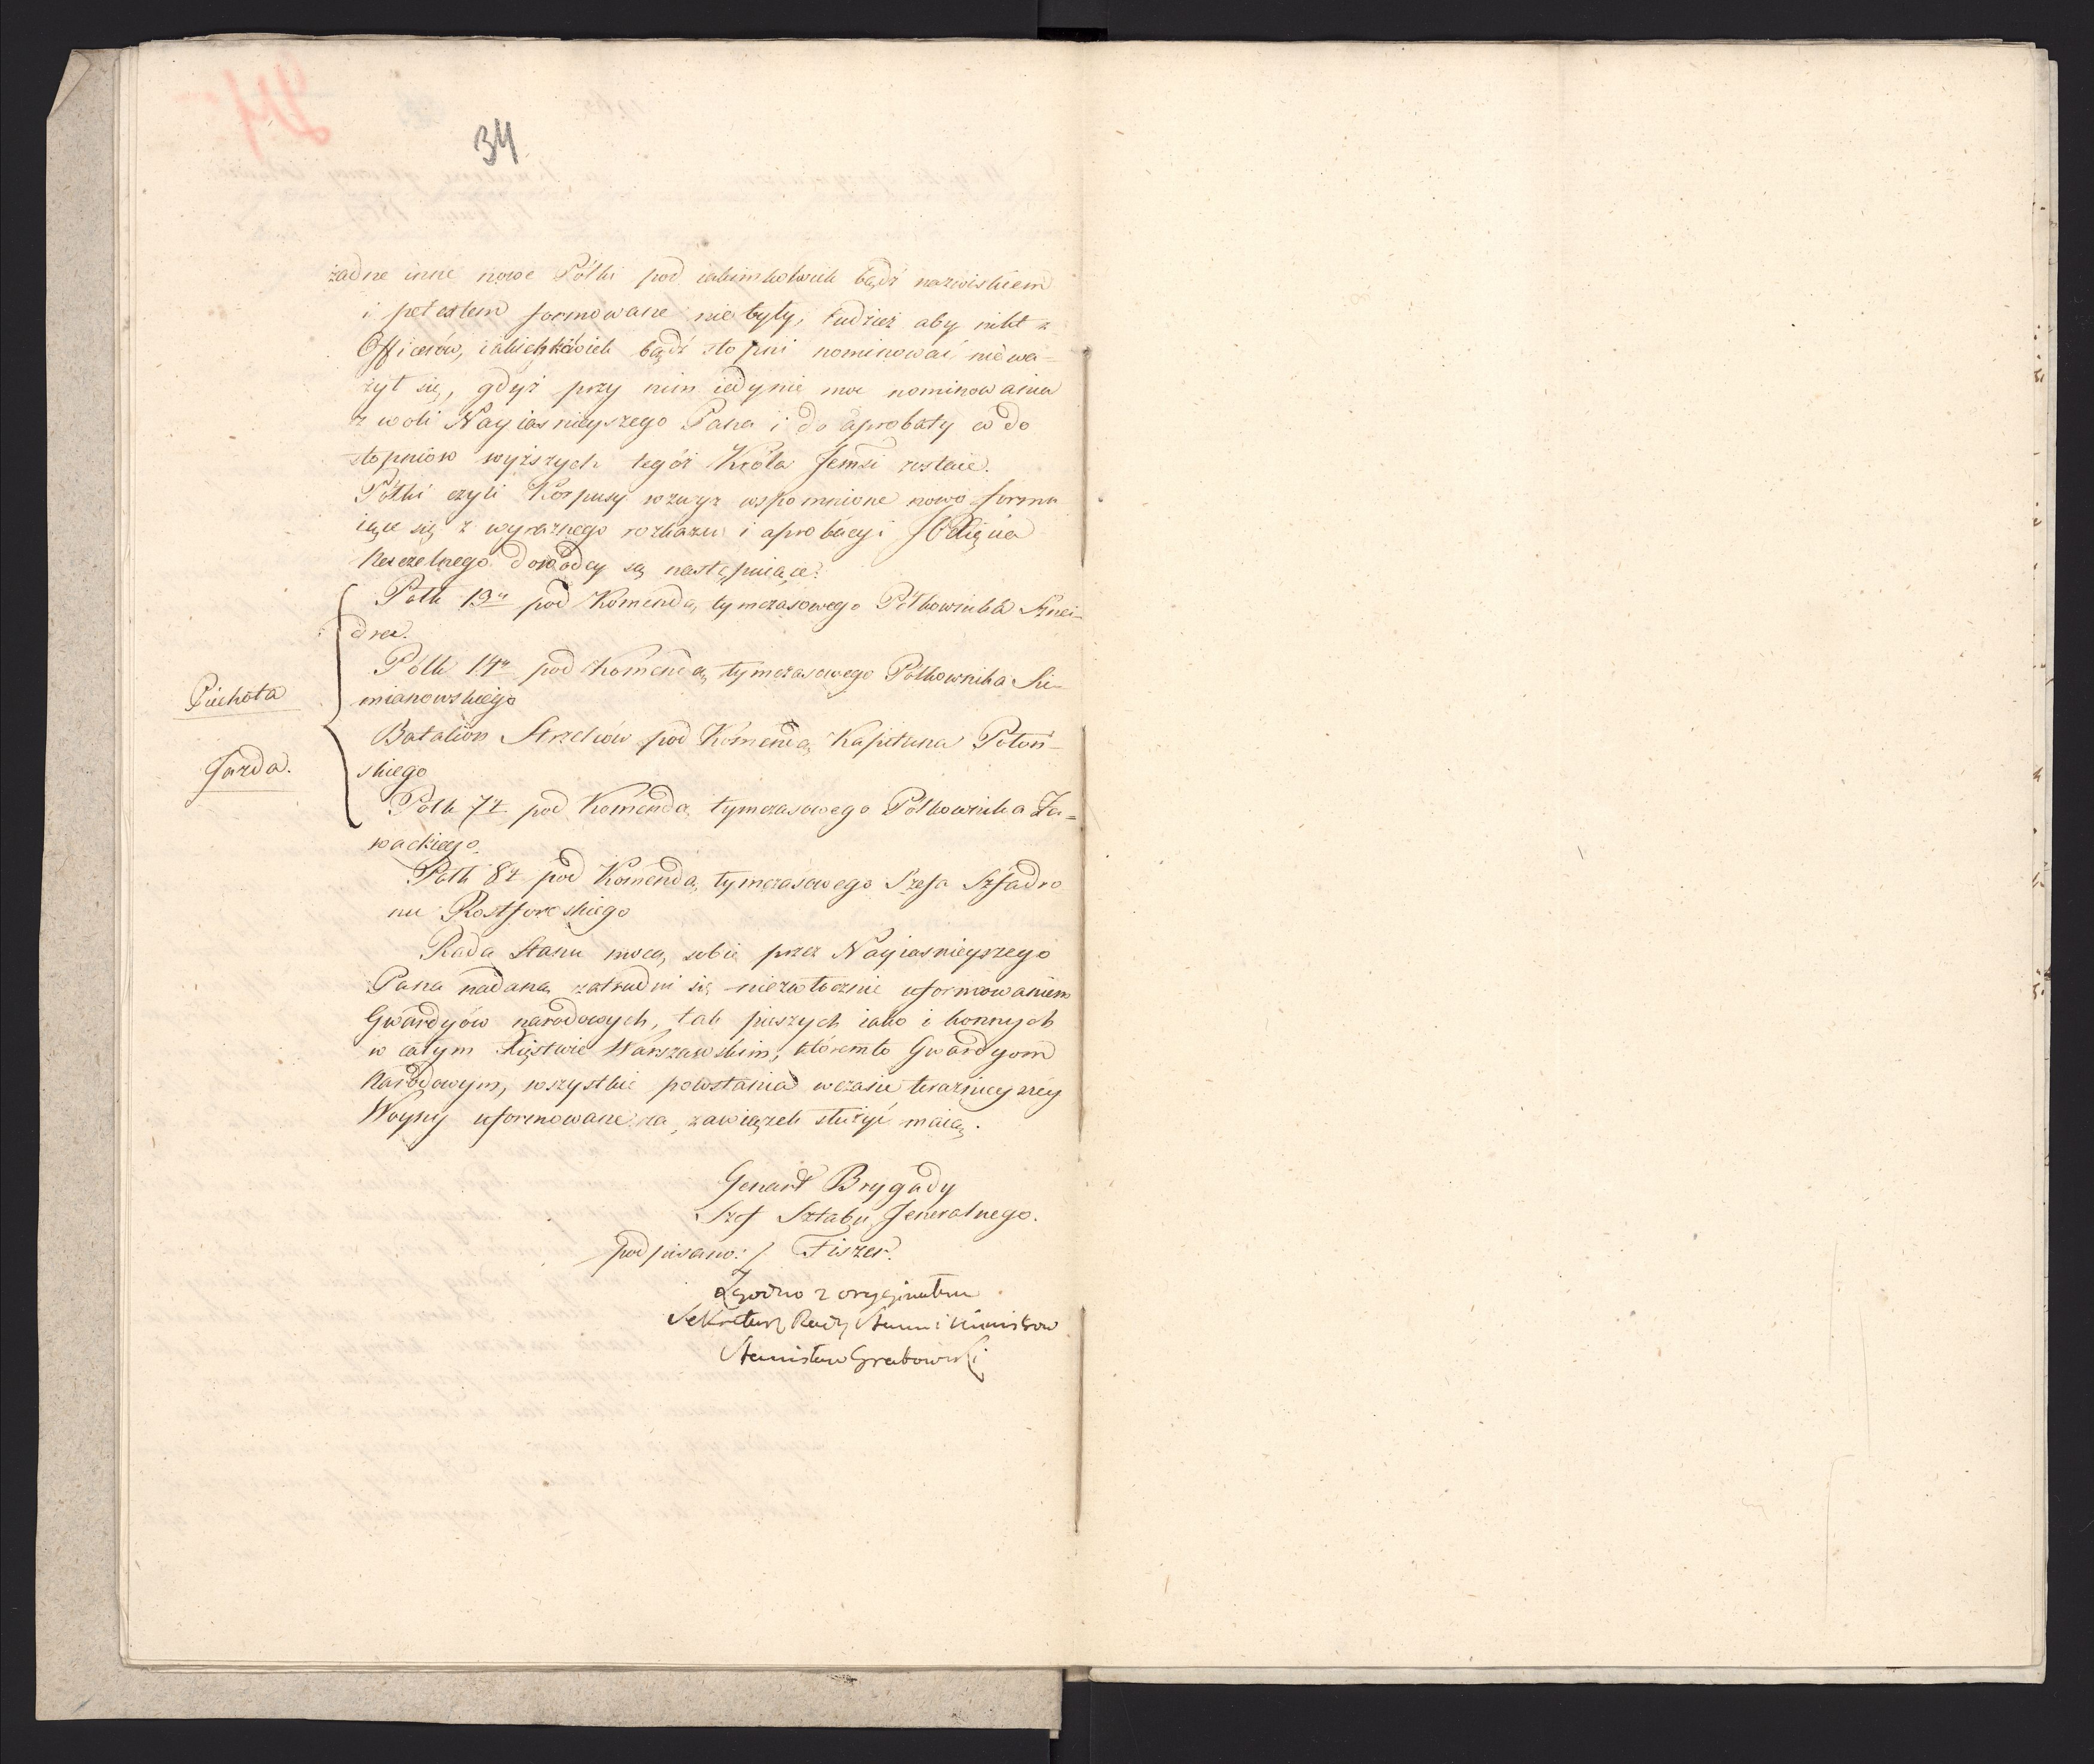 34
żadne inne nowe Półki pod iakimkolwiek bądź nazwiskiem
i pretextem formowane nie były, tudzież aby nikt z
Officerów, iakichkolwiek bądź stopni nominować nie wa=
żył się, gdyż przy nim iedynie moc nominowania
z woli Nayiasnieyszego Pana i do aprobaty co do
stopniów wyższych tegóż Króla Jemsi zostaie.
Półki czyli Korpusy wzwyż wspomnione nowo formu
iące się z wyraznego rozkazu i aprobacyi JO Xięcia
Naczelnego Dowódcy są następuiące:
Półk 13y pod Komendą tymczasowego Półkownika Sznei=
dra.
Półk 14y pod Komendą tymczasowego Półkownika Sie=
mianowskiego
Piechota
Batalion Strzelców pod Komendą Kapitana Potoń=
skiego
Jazda.
Półk 7y pod Komendą tymczasowego Półkownika Za=
wackiego.
Półk 8y pod Komendą tymczasowego Szefa Szfadro
nu Rostforoskiego
Rada Stanu mocą sobie przez Nayiasnieyszego
Pana nadaną zatrudni się niezwłocznie uformowaniem
Gwardyów narodowych, tak pieszych iako i konnych
w całym Xięstwie Warszawskim, któremto Gwardyom
Narodowym, wszystkie powstania w czasie teraznieyszey
Woyny uformowane za zawiązek służyć maią.
Generał Brygady
Szef Sztabu Jeneralnego.
podpisano: / Fiszer.
Zgodno z oryginałem
Sekretarz Rady Stanu i Ministrow
Stanisław Grabowski